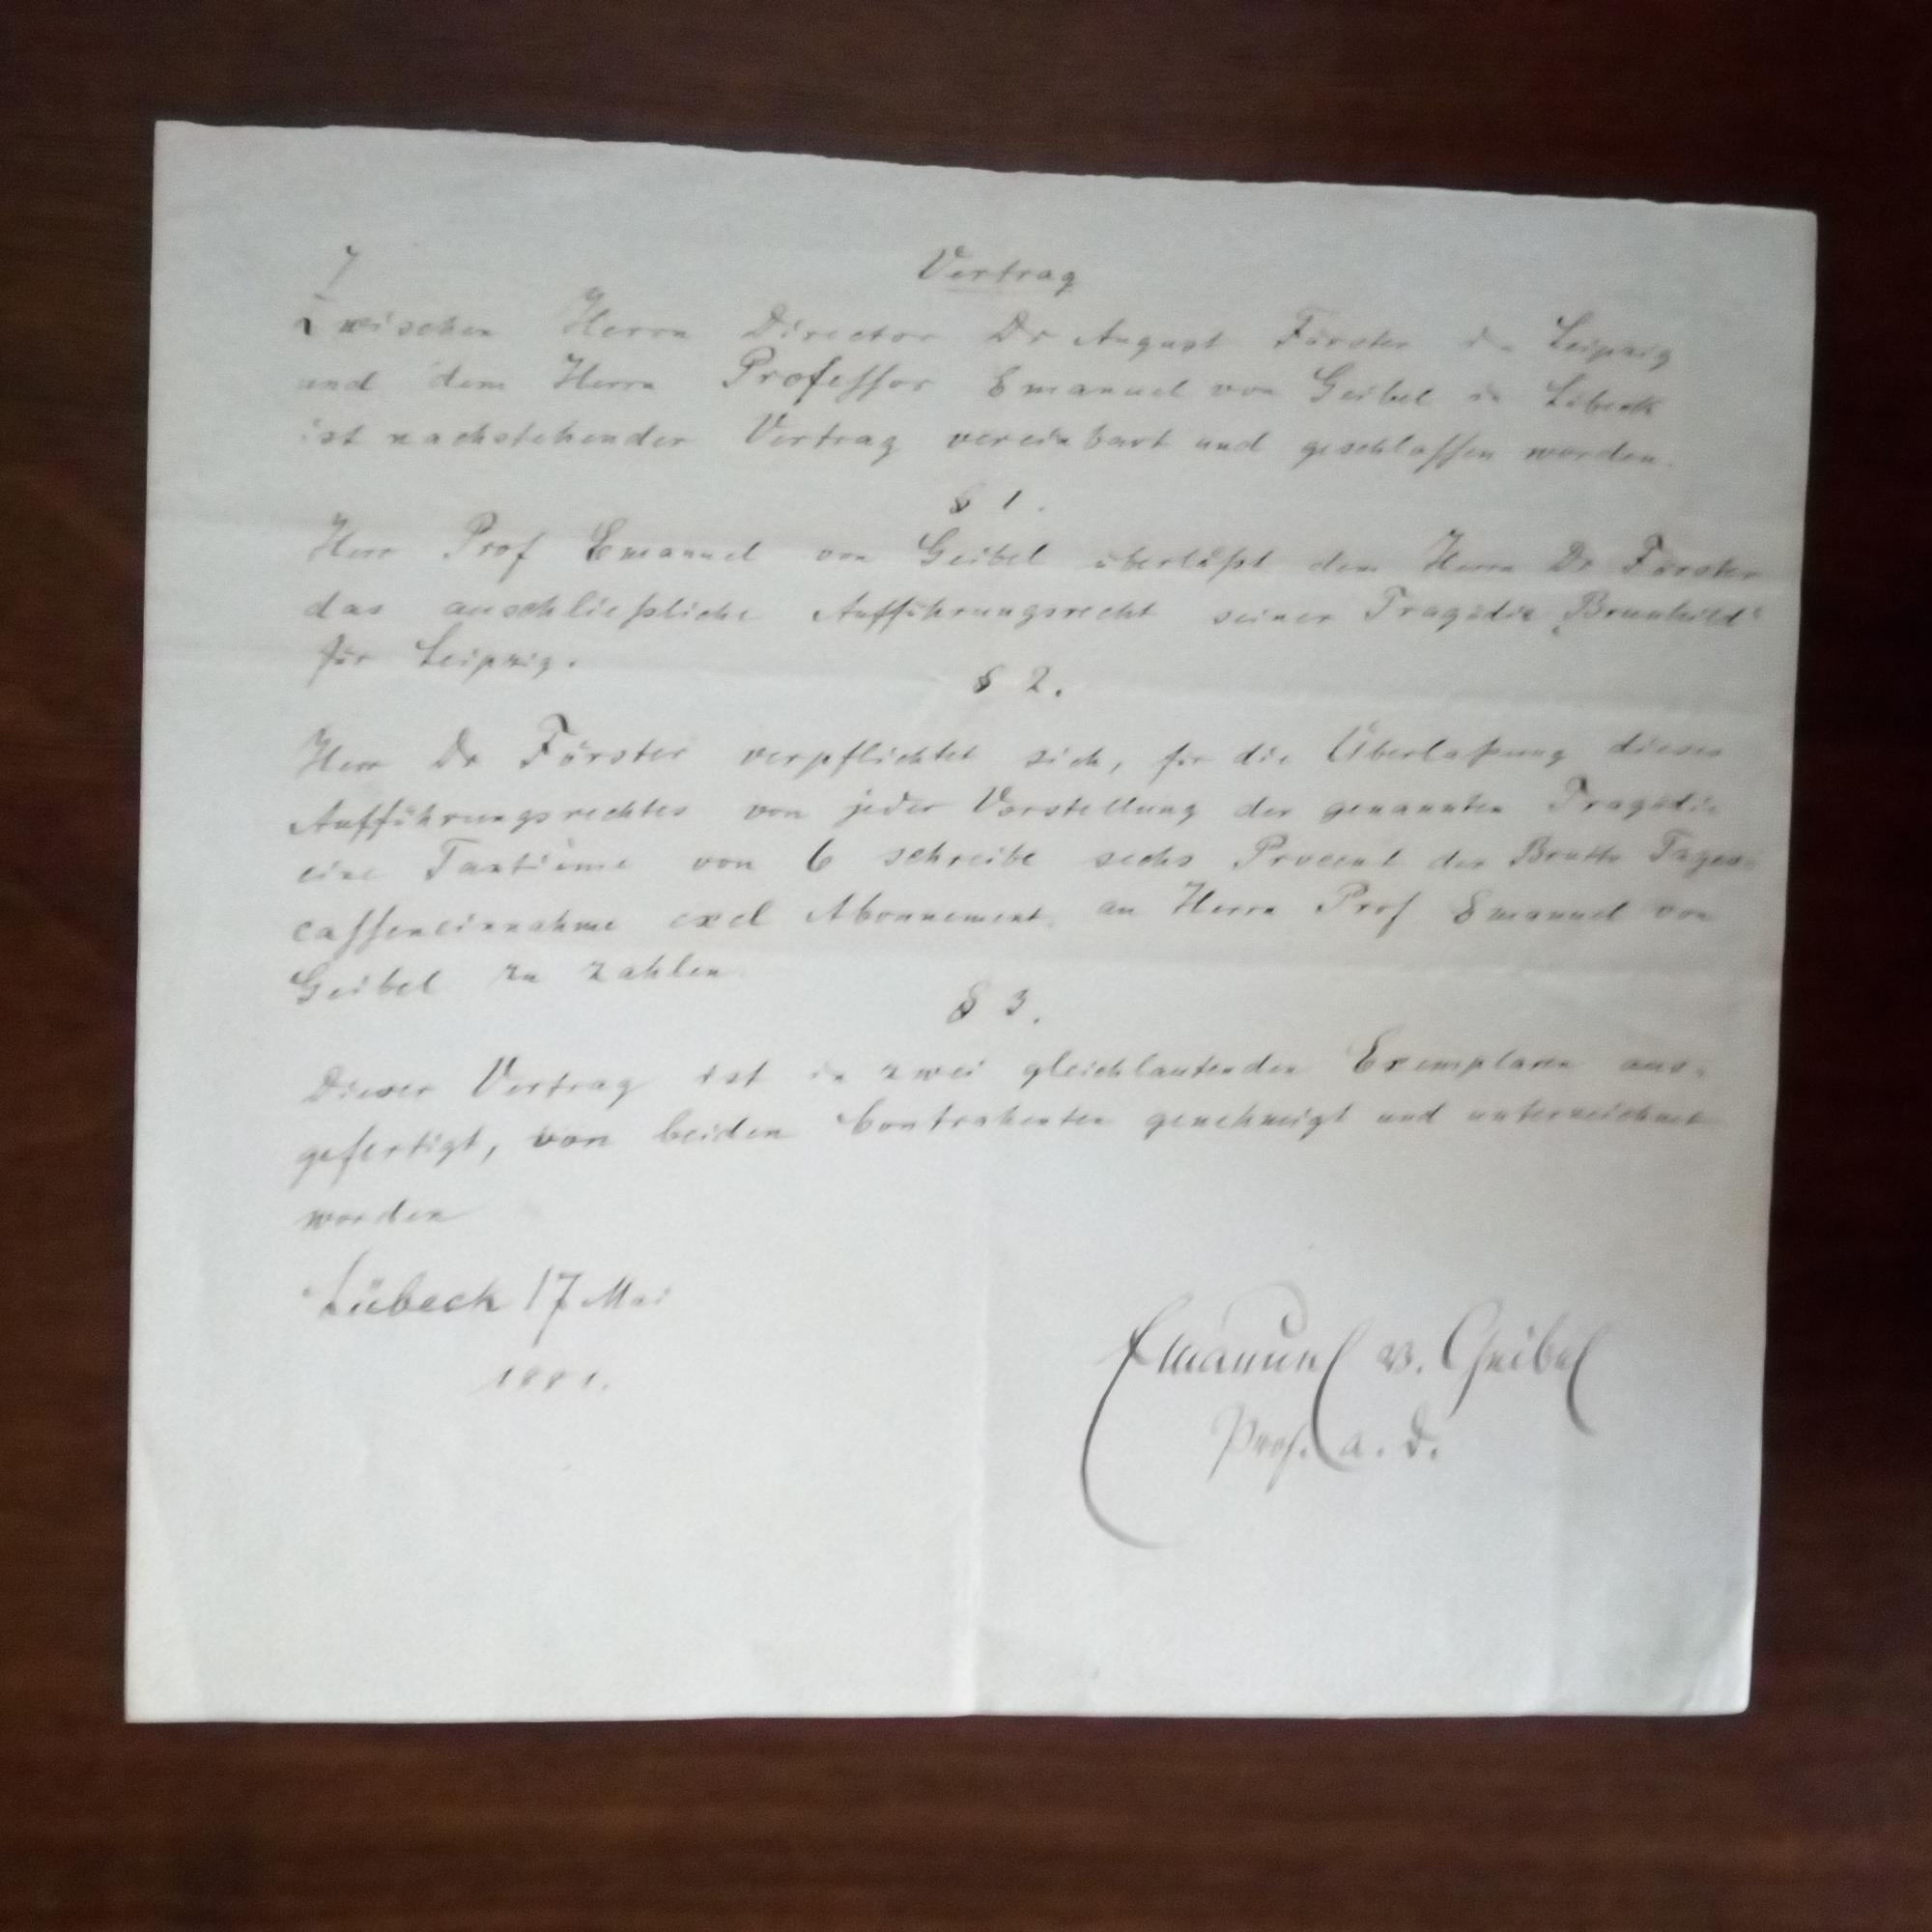 Vertrag
Zwischen Herrn Director Dr August Förster in Leipzig
und dem Herrn Professor Emanuel von Geibel in Lübeck
ist nachstehender Vertrag vereinbart und geschlossen worden.
§ 1.
Herr Prof Emanuel von Geibel überläßt dem Herrn Dr Förster
das ausschließliche Aufführungsrecht seiner Tragödie „Brunhild“
für Leipzig.
§ 2.
Herr Dr Förster verpflichtet sich, für die Überlaßung dieses
Aufführungsrechtes von jeder Vorstellung der genannten Tragödie
eine Tantième von 6 schreibe sechs Procent der Brutto Tages-
casseneinnahme excl Abonnement an Herrn Prof Emanuel von
Geibel zu zahlen
§ 3.
Dieser Vertrag ist in zwei gleichlautenden Exemplaren aus-
gefertigt, von beiden Contrahenten genehmigt und unterzeichnet
worden
Lübeck 17 Mai
1881.
Emanuel v. Geibel
Prof. a. D.